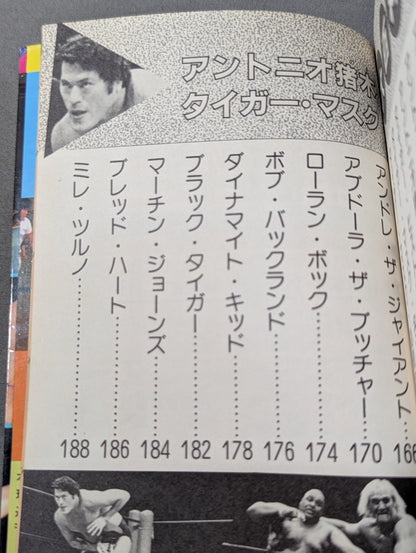 アントニオ猪木
タイガー・マスク
アンドレ・ザ・ジャイアント……………166
アブドーラ・ザ・ブッチャー……………170
ローラン・ボック……………174
ボブ・バックランド……………176
ダイナマイト・キッド……………178
ブラック・タイガー……………182
マーチン・ジョーンズ……………184
ブレッド・ハート……………186
ミレ・ツルノ……………188